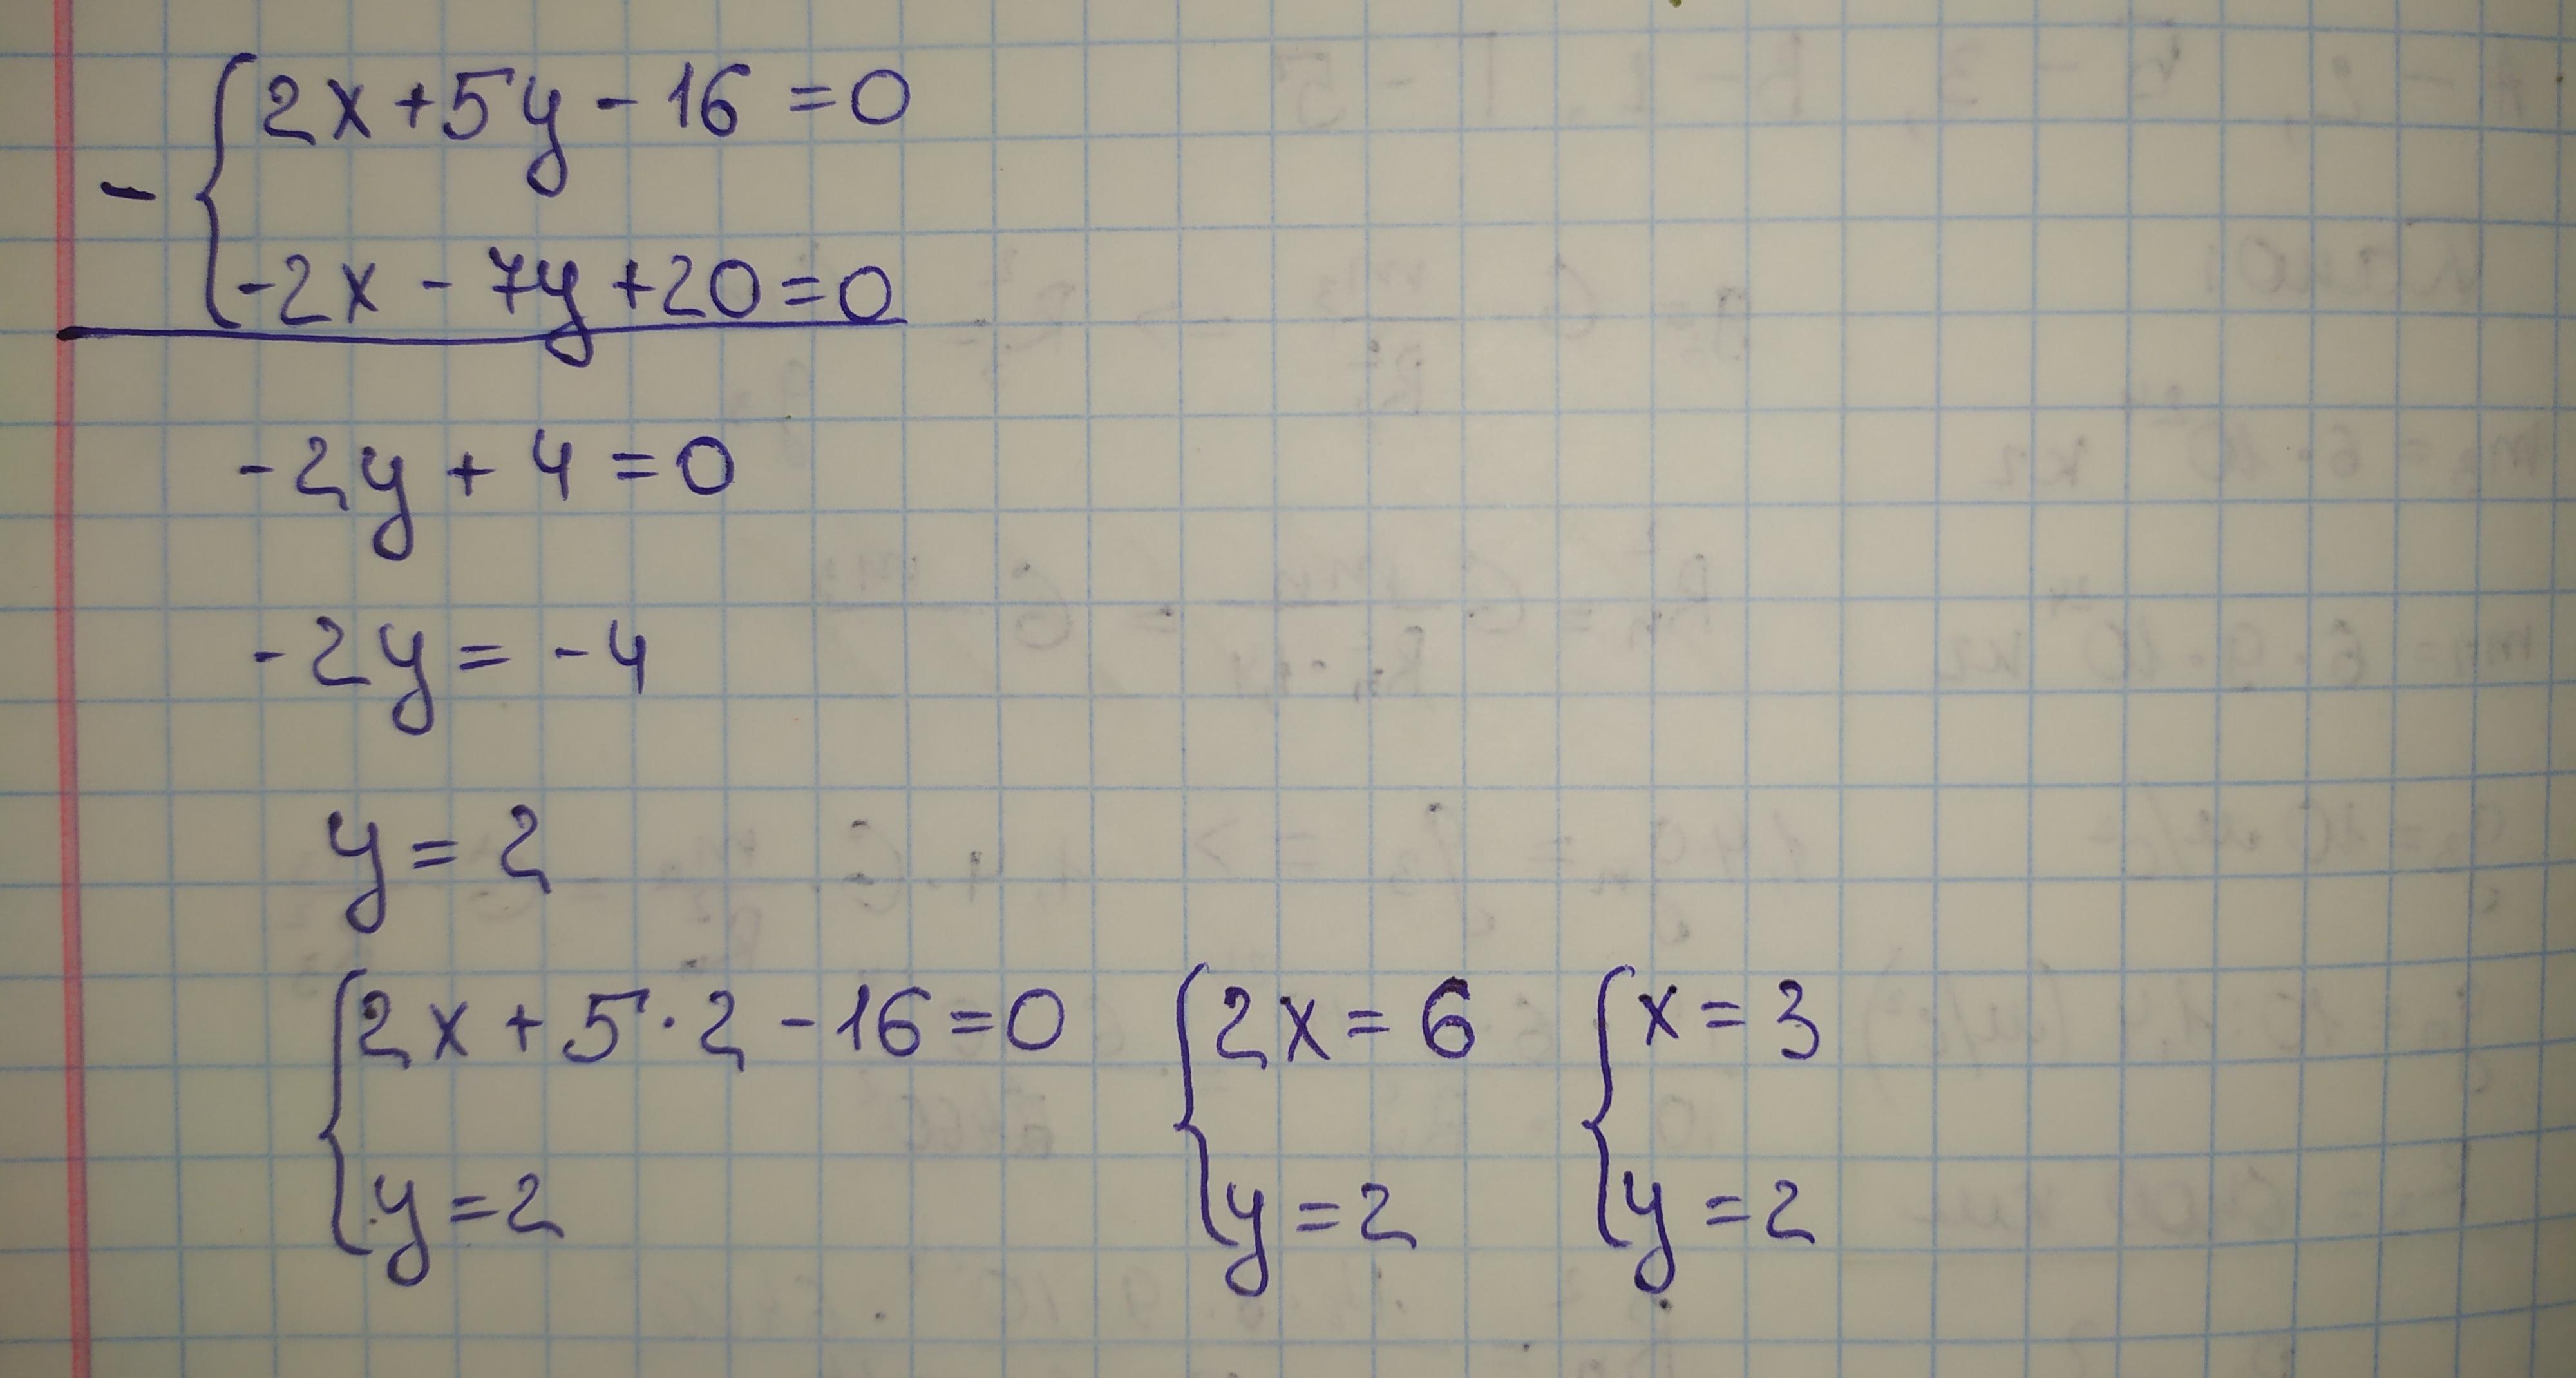 - { 2x + 5y - 16 = 0
-2x - 7y + 20 = 0
-2y + 4 = 0
-2y = -4
y = 2
{ 2x + 5 · 2 - 16 = 0 { 2x = 6 { x = 3
y = 2 y = 2 y = 2